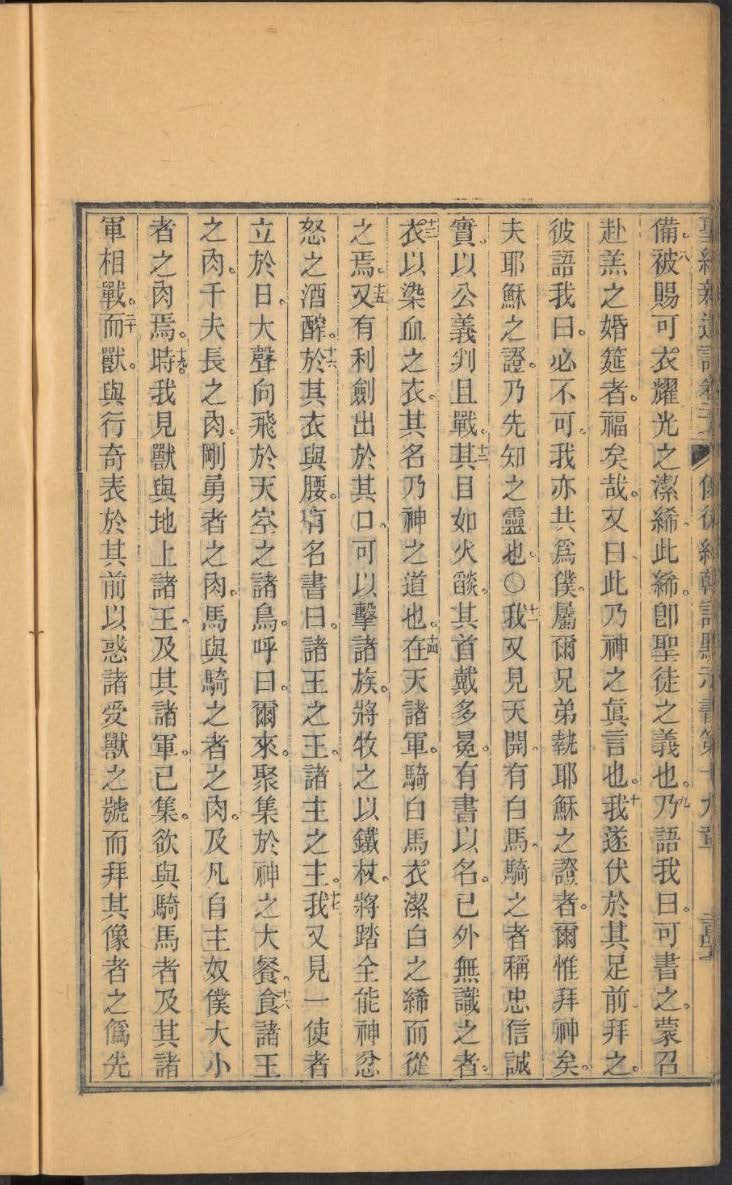 備。八被賜可衣耀光之潔絺、此絺卽聖徒之義也。九乃語我曰。可書之。蒙召
赴羔之婚筵者。福矣哉。又曰此乃神之眞言也。十我遂伏於其足前拜之。
彼語我曰。必不可。我亦共爲僕。屬爾兄弟執耶穌之證者。爾惟拜神矣。
夫耶穌之證。乃先知之靈也。〇十一我又見天開。有白馬。騎之者稱忠信誠
實。以公義判且戰。十二其目如火燄。其首戴多冕。有書以名。已外無識之者。
十三衣以染血之衣。其名乃神之道也。十四在天諸軍。騎白馬。衣潔白之絺而從
之焉。十五又有利劍出於其口。可以擊諸族。將牧之以鐵杖。將踏全能神忿
怒之酒醡。十六於其衣與腰。有名書曰。諸王之王。諸主之主。十七我又見一使者
立於日。大聲向飛於天空之諸鳥。呼曰。爾來。聚集於神之大餐。十八食諸王
之肉。千夫長之肉。剛勇者之肉。馬與騎之者之肉。及凡自主奴僕大小
者之肉焉。十九時我見獸與地上諸王。及其諸軍。已集。欲與騎馬者及其諸
軍相戰。二十而獸。與行奇表於其前以惑諸受獸之號而拜其像者之僞先